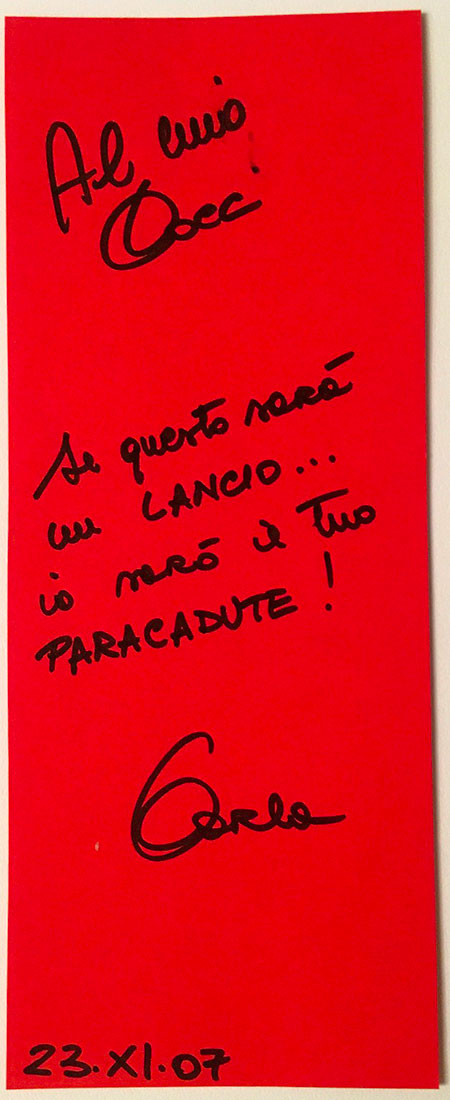 Al mio
Se questo sarà
un LANCIO...
io sarò il Tuo
PARACADUTE!
Carla
23.XI.07